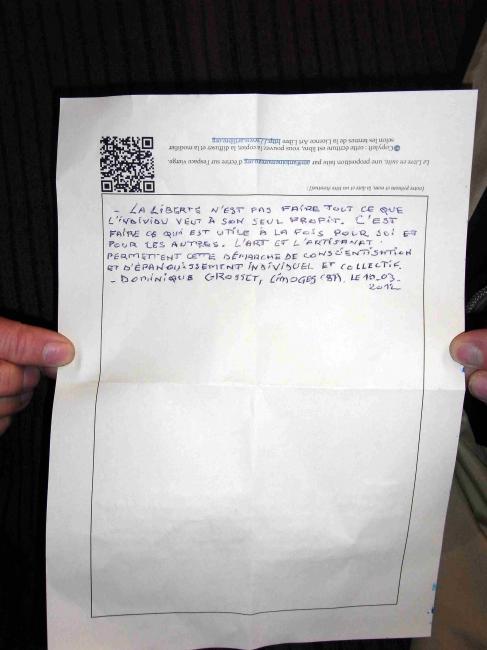 - LA LIBERTÉ N'EST PAS FAIRE TOUT CE QUE
L'INDIVIDU VEUT À SON SEUL PROFIT. C'EST
FAIRE CE QUI EST UTILE À LA FOIS POUR SOI ET
POUR LES AUTRES. L'ART ET L'ARTISANAT
PERMETTENT CETTE DÉMARCHE DE CONSCIENTISATION
ET D'ÉPANOUISSEMENT INDIVIDUEL ET COLLECTIF.
- DOMINIQUE GROSSET, LIMOGES (87). LE 10.03.
2012
(votre prénom et nom, la date et un titre éventuel)
Le Livre en suite, une proposition faite par
d'écrire sur l'espace vierge.
© Copyleft : cette écriture est libre, vous pouvez la copier, la diffuser et la modifier
selon les termes de la Licence Art Libre http://www.artlibre.org